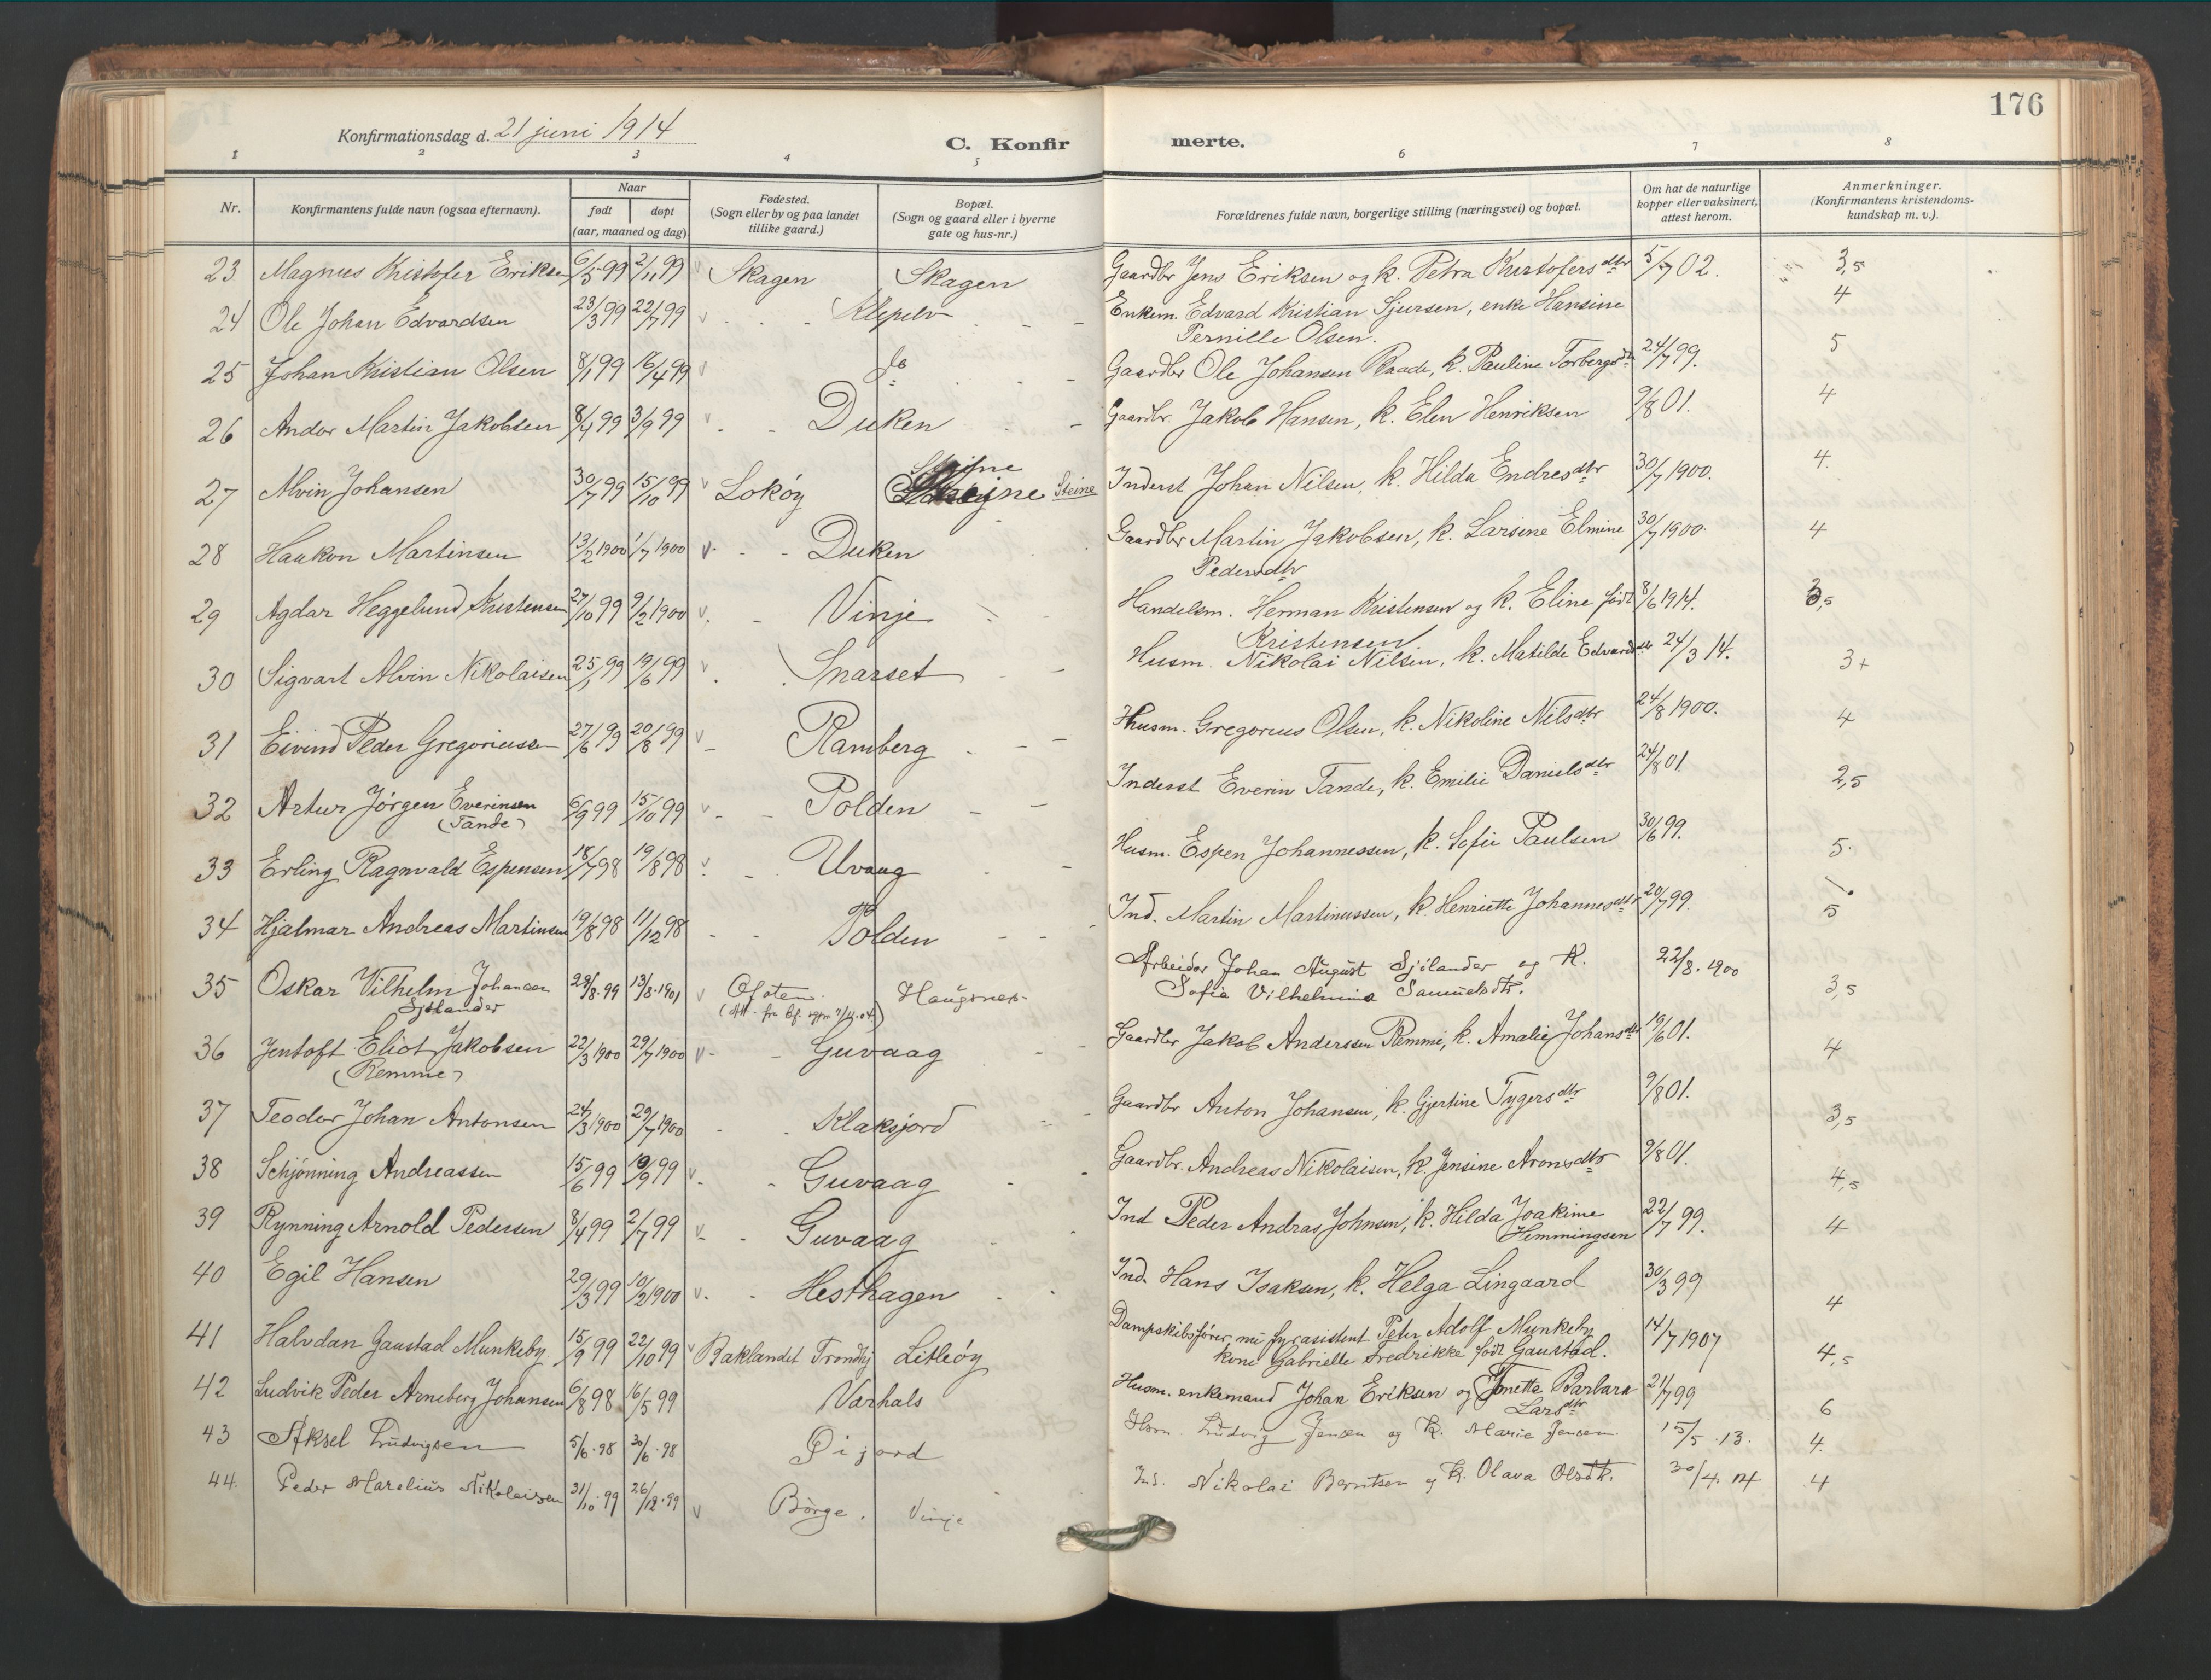 176
Konfirmationsdag d. 21 juni 1914
C. Konfirmerte.
1 2 3 4 5 6 7 8
Nr.
Konfirmantens fulde navn (ogsaa efternavn).
Naar
født døpt
(aar, maaned og dag)
Fødested.
(Sogn eller by og paa landet
tillike gaard.)
Bopæl.
(Sogn og gaard eller i byerne
gate og hus-nr.)
Forældrenes fulde navn, borgerlige stilling (næringsvei) og bopæl.
Om hat de naturlige
kopper eller vaksinert,
attest herom.
Anmerkninger.
(Konfirmantens kristendoms-
kundskap m. v.).
23 Magnus Kristofer Eriksen 6/5 99 2/11 99 Skagen Skagen Gaardbr Jens Eriksen og k. Petra Kristofersdtr 5/7 02. 3,5
24 Ole Johan Edvardsen 23/3 99 22/7 99 Klepelv Enkem. Edvard Kristian Sjursen, enke Hansine 4
Pernille Olsen.
25 Johan Kristian Olsen 8/1 99 16/4 99 do Gaardbr Ole Johansen Raade, k. Pauline Torbergsdtr 24/7 99. 5
26 Andor Martin Jakobsen 8/4 99 3/9 99 Duken Gaardbr. Jakob Hansen, k. Elen Henriksen 9/8 01. 4
27 Alvin Johansen 30/7 99 15/10 99 Lokøy Steine Inderst Johan Nilsen, k. Hilda Endresdtr 30/7 1900. 4.
28 Haakon Martinsen 13/2 1900 1/7 1900 Duken Gaardbr Martin Jakobsen, k. Larsine Elmine 30/7 1900. 4
Pedersdtr
29 Agdar Heggelund Kristensen 27/10 99 9/2 1900 Vinje Handelsm. Herman Kristensen og k. Eline født 8/6 1914. 3,5
Kristensen
30 Sigvart Alvin Nikolaisen 25/1 99 19/6 99 Snarset Husm. Nikolai Nilsen, k. Matilde Edvardsdtr 24/3 14. 3+
31 Eivind Peder Gregoriussen 27/6 99 20/8 99 Ramberg Husm. Gregorius Olsen, k. Nikoline Nilsdtr 24/8 1900. 4
32 Artur Jørgen Everinsen 6/9 99 15/10 99 Polden Inderst Everin Tande, k. Emilie Danielsdtr 24/8 01. 2,5
(Tande)
33 Erling Ragnvald Espensen 18/7 98 19/8 98 Uvaag Husm. Espen Johannessen, k. Sofie Paulsen 30/6 99. 5.
34 Hjalmar Andreas Martinsen 19/8 98 11/12 98 Polden Ind. Martin Martinussen, k. Henriette Johannesdtr 20/7 99. 5
35 Oskar Vilhelm Johansen 29/8. 99 13/8. 1901 Ofoten. Haugsnes. Arbeider Johan August Sjölander og k. 22/8. 1900 3,5
Sjölander Sofia Vilhelmina Samuelsdtr.
36 Jentoft Eliot Jakobsen 22/3 1900 29/7 1900 Guvaag Gaardbr Jakob Anderssen Remme, k. Amalie Johansdtr 19/6 01. 4
(Remme)
37 Teodor Johan Antonsen 24/3 1900 29/7 1900 Klaksjord Gaardbr Anton Johansen, k. Gjertine Tygersdtr 9/8 01. 3,5
38 Schjønning Andreassen 15/6 99 10/9 99 Guvaag Gaardbr. Andreas Nikolaisen, k. Jensine Aronsdtr 9/8 01. 4,5
39 Rynning Arnold Pedersen 8/4 99 2/7 99 Guvaag Ind Peder Andras Johnsen, k. Hilda Joakime 22/7 99. 4
Hemmingsen
40 Egil Hansen 29/3 99 10/2 1900 Hesthagen Ind. Hans Isaksen, k. Helga Lingaard 30/3 99 4
41 Halvdan Gaustad Munkeby 15/9 99 22/10 99 Baklandet Trondhj Litløy Dampskibsfører, nu fyrasistent Peter Adolf Munkeby 14/7 1907 4,5
kone Gabrielle Fredrikke født Gaustad.
42 Ludvik Peder Arneberg Johansen 6/8 98 16/5 99 Varhals Husm. enkemand Johan Eriksen og Jonette Barbara 21/7 99 6
Larsdtr
43 Aksel Ludvigsen 5/6. 98 30/6. 98 Øijord Ludvig Jensen og k. Marie Jensen. 15/5. 13. 4.
44. Peder Marelius Nikolaisen 31/10. 99 26/12. 99 Börge. Vinje Ind. Nikolai Berntsen og k. Olava Olsdtr. 30/4. 14 4